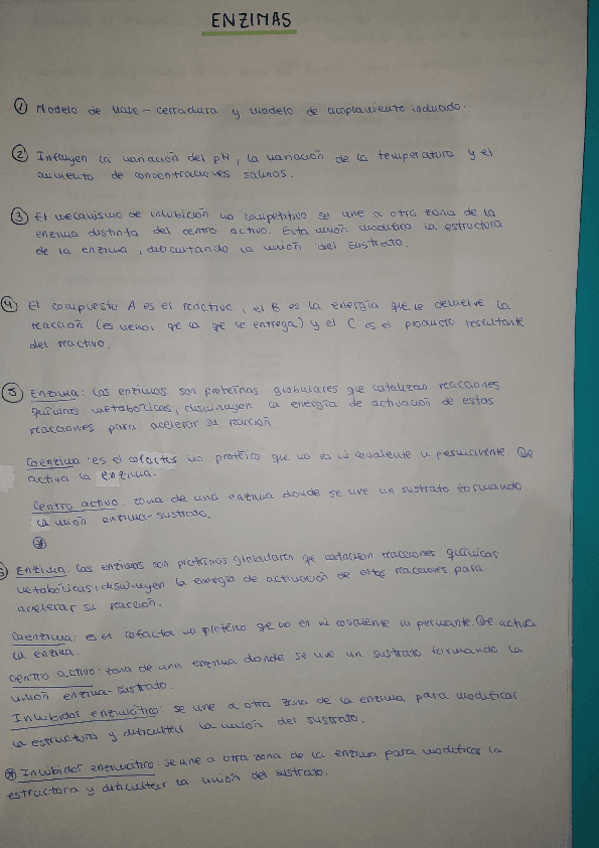 ENZIMAS
① Modelo de llave-cerradura y modelo de acoplamiento inducido.
② Influyen la variación del pH, la variación de la temperatura y el
aumento de concentraciones salinas.
③ El mecanismo de inhibición no competitivo se une a otra zona de la
enzima distinta del centro activo. Esta unión modifica la estructura
de la enzima, dificultando la unión del sustrato.
④ El compuesto A es el reactivo, el B es la energía que le devuelve la
reacción (es menor qe la qe le entrega) y el C es el producto resultante
del reactivo.
⑤ Enzima: Las enzimas son proteínas globulares que catalizan reacciones
químicas metabólicas, disminuyen la energía de activación de estas
reacciones para acelerar su reacción.
Coenzima: es el cofactor no proteico que no es ni covalente ni permanente. Qe
activa la enzima.
Centro activo: zona de una enzima donde se une un sustrato formando
la unión enzima-sustrato.
⊛
Enzima: Las enzimas son proteínas globulares qe catalizan reacciones químicas
metabólicas, disminuyen la energía de activación de estas reacciones para
acelerar su reacción.
Coenzima: es el cofactor no proteico qe no es ni covalente ni permante. Qe activa
la enzima.
Centro activo: zona de una enzima donde se une un sustrato formando la
unión enzima-sustrato.
Inhibidor enzimático: se une a otra zona de la enzima para modificar
la estructura y dificultar la unión del sustrato.
⊛ Inhibidor enzimático: se une a otra zona de la enzima para modificar la
estructura y dificultar la unión del sustrato.